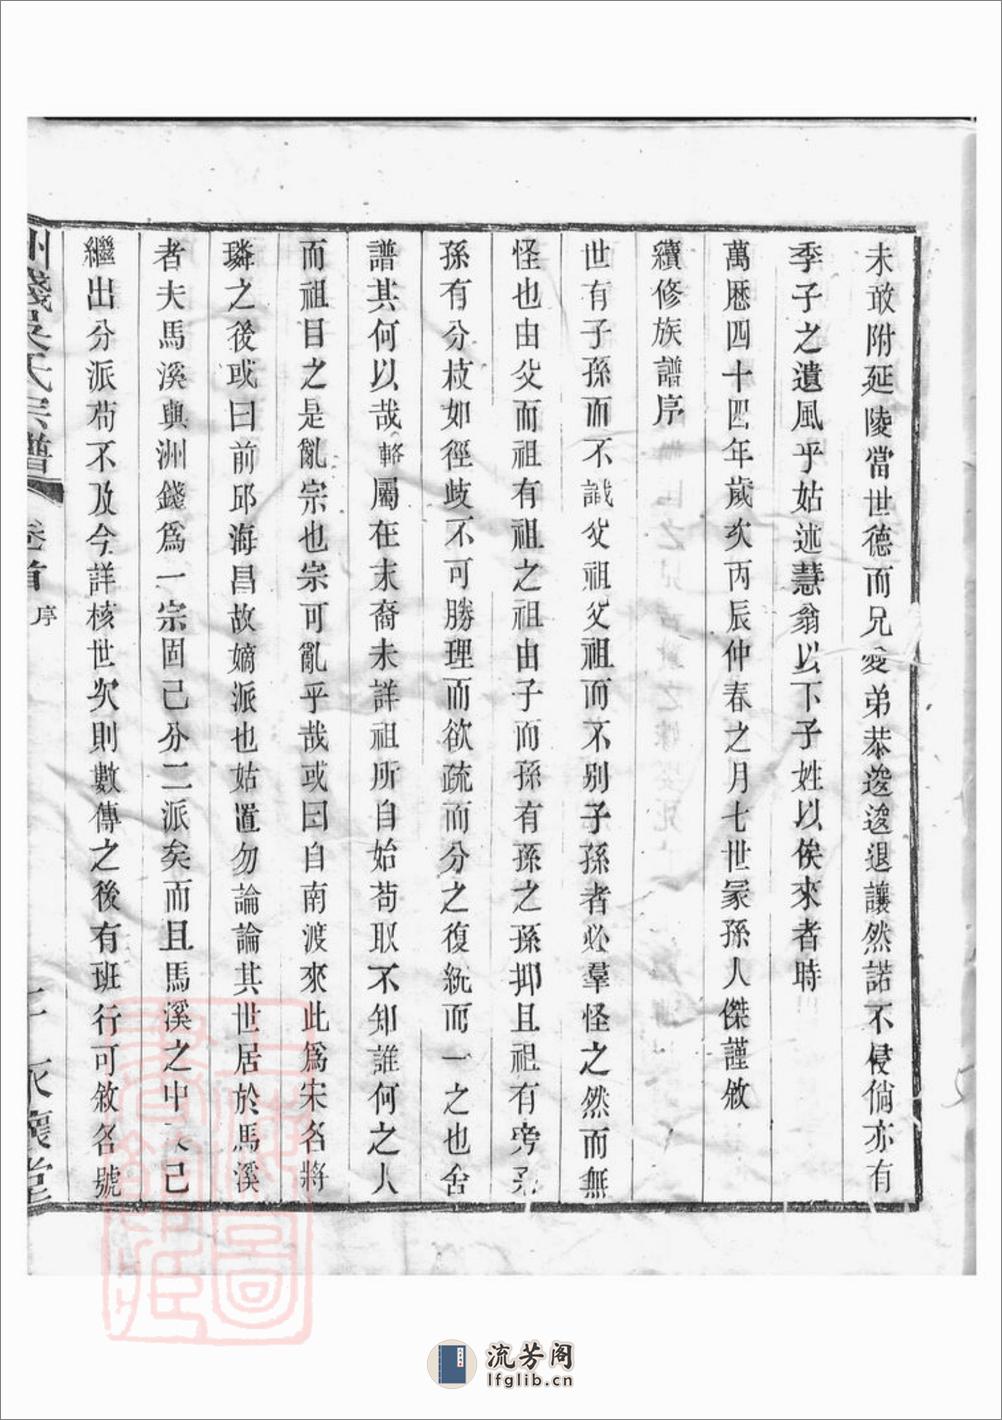 未敢附延陵當世德而兄愛弟恭逡逡退讓然諾不侵倘亦有
季子之遺風乎姑述慧翁以下子姓以俟來者時
萬曆四十四年歲次丙辰仲春之月七世冢孫人傑謹敘
續修族譜序
世有子孫而不識父祖父祖而不別子孫者必羣怪之然而無
怪也由父而祖有祖之祖由子而孫有孫之孫抑且祖有旁
孫有分枝如徑歧不可勝理而欲疏而分之復統而一之也舍
譜其何以哉輅屬在末裔未詳祖所自始苟取不知誰何之人
而祖目之是亂宗也宗可亂乎哉或曰自南渡來此爲宋名將
璘之後或曰前邱海昌故嫡派也姑置勿論論其世居於馬溪
者夫馬溪與洲錢爲一宗固已分二派矣而且馬溪之中又已
繼出分派苟不及今詳核世次則數傳之後有班行可敘名號
洲錢吳氏宗譜 卷首 序 永懷堂
5
流芳阁
lfglib.cn